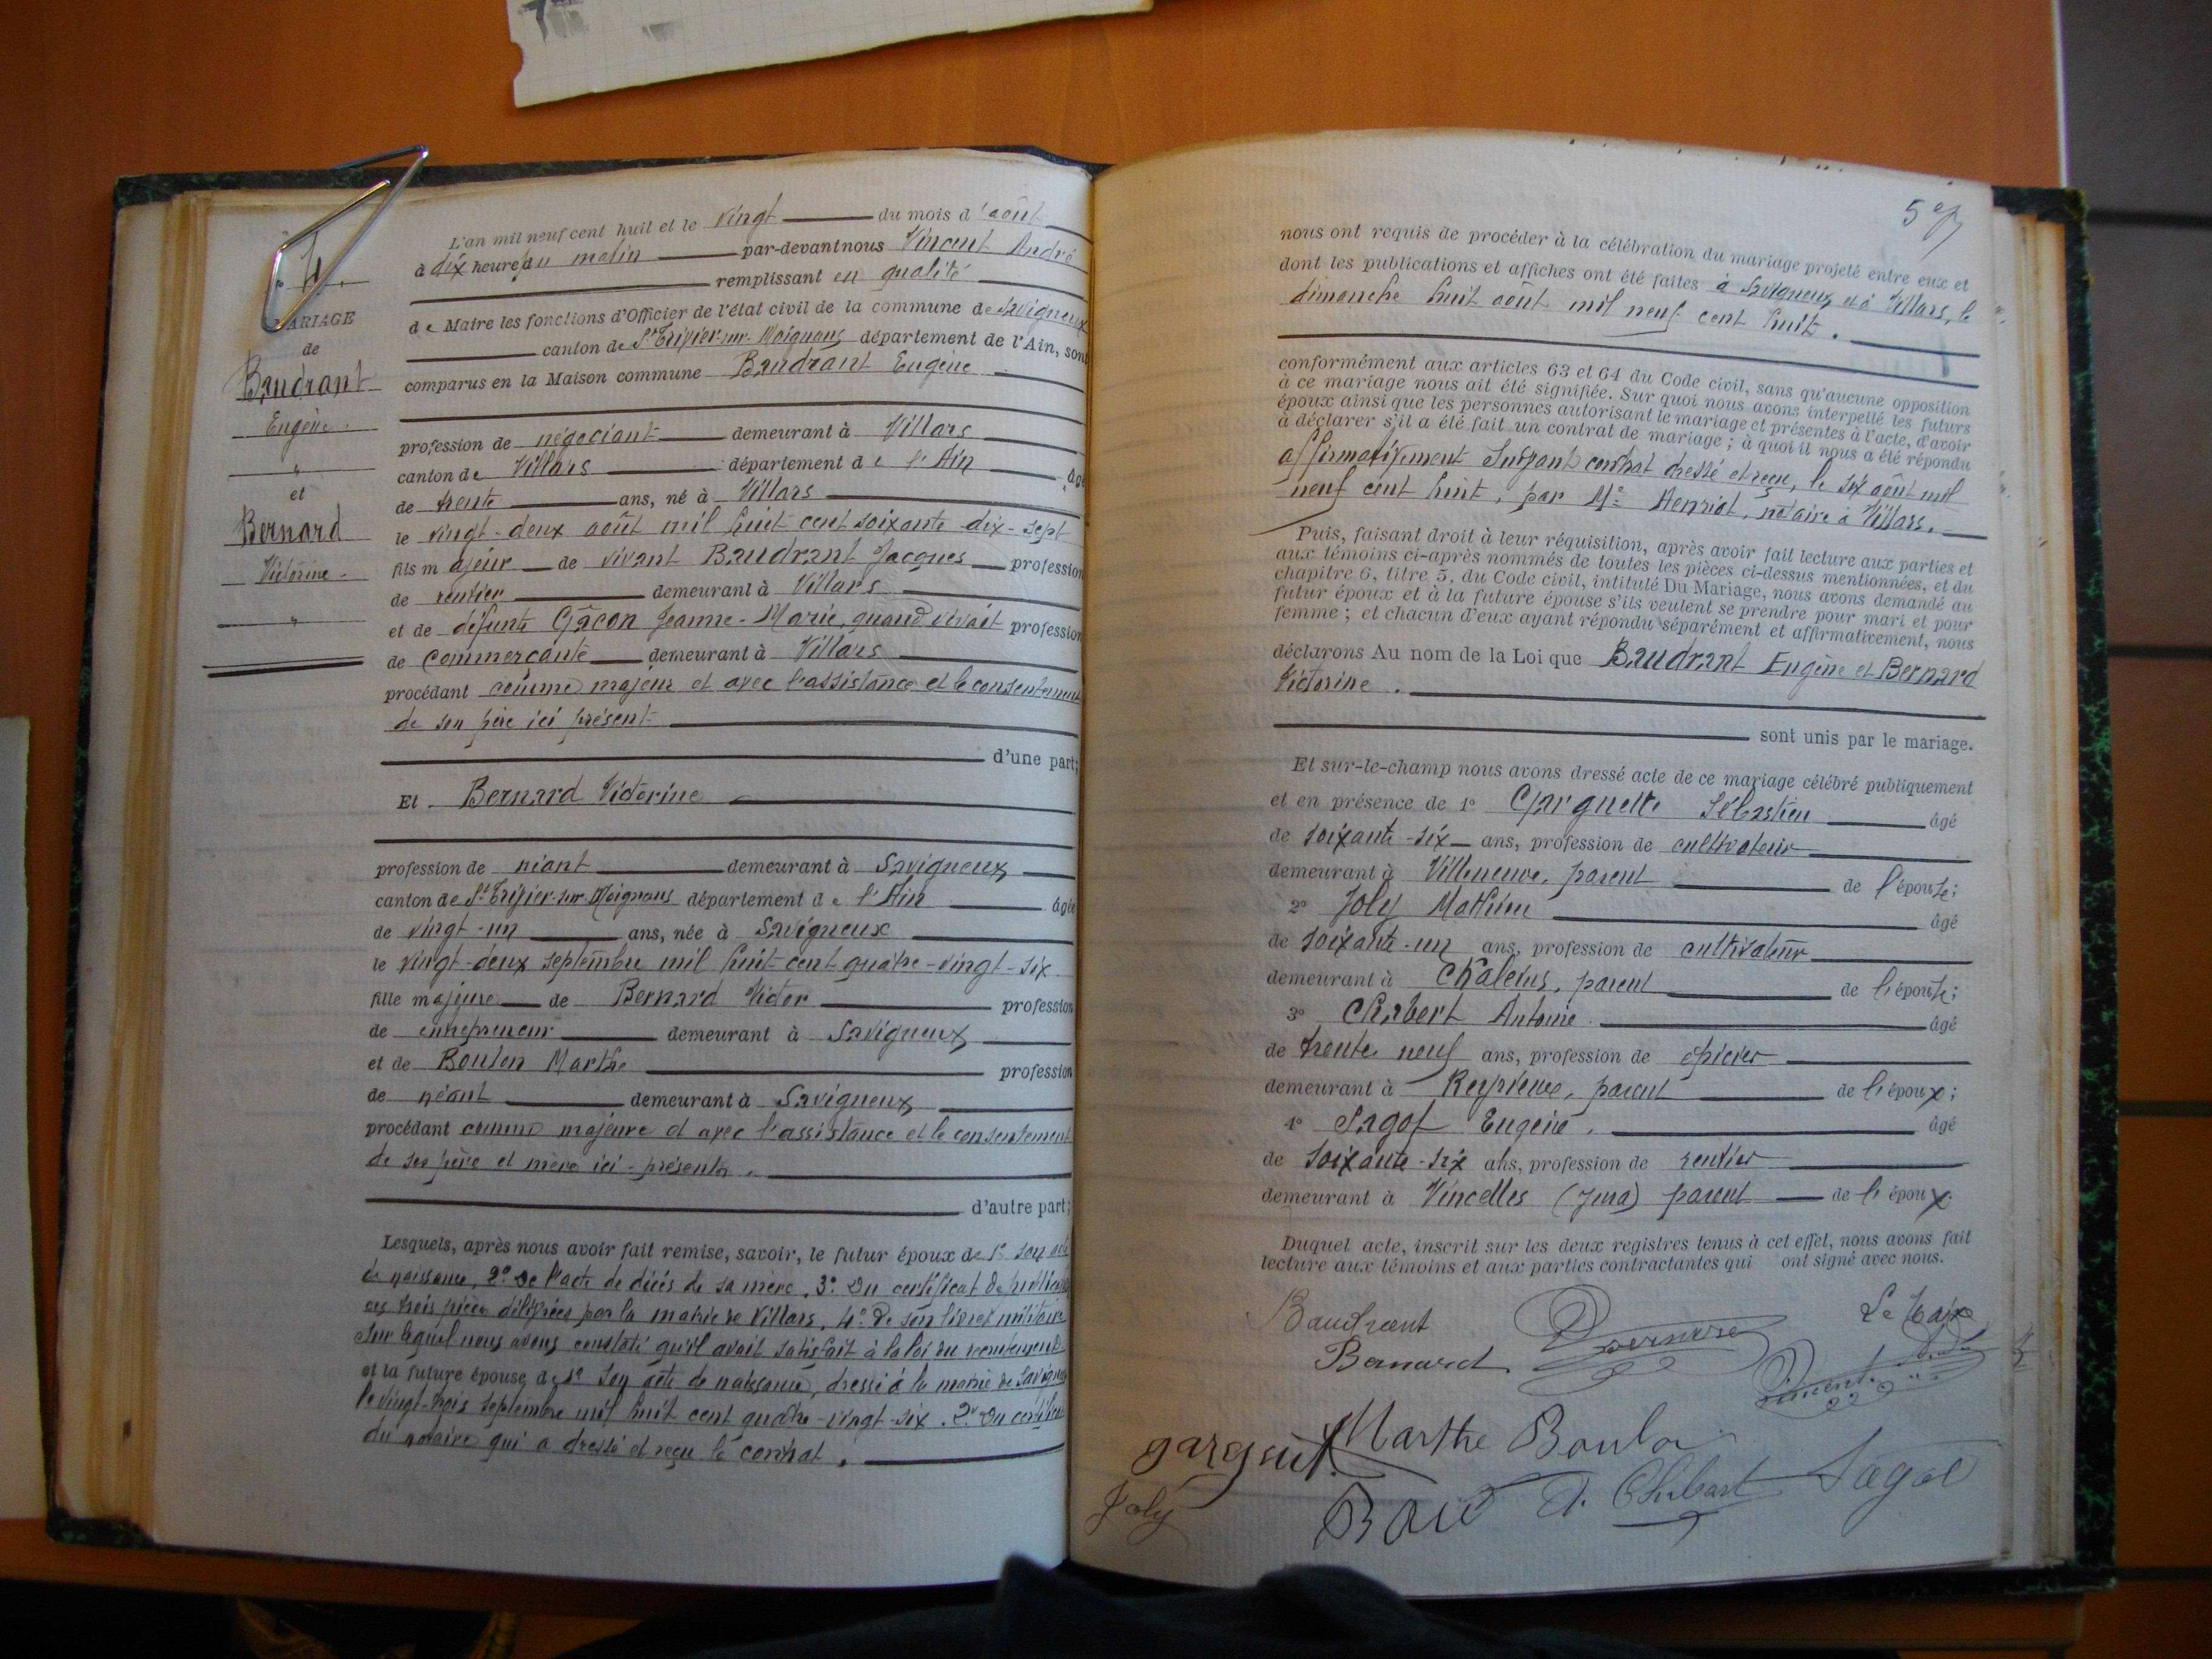 MARIAGE
de
Baudrant
Eugène.
"
et
Bernard
Victorine.
"
L'an mil neuf cent huit et le vingt du mois d'août
à dix heures du matin par-devant nous Vincent André
remplissant en qualité
de Maire les fonctions d'Officier de l'état civil de la commune de Savigneux
canton de St Trivier-sur-Moignans département de l'Ain, sont
comparus en la Maison commune Baudrant Eugène
profession de négociant demeurant à Villars
canton de Villars département de l'Ain âgé
de trente ans, né à Villars
le vingt-deux août mil huit cent soixante-dix-sept
fils majeur de vivant Baudrant Jacques profession
de rentier demeurant à Villars
et de défunte Gâcon Jeanne-Marie, quand vivait profession
de commerçante demeurant à Villars
procédant comme majeur et avec l'assistance et le consentement
de son père ici présent
d'une part;
Et Bernard Victorine
profession de néant demeurant à Savigneux
canton de St Trivier-sur-Moignans département de l'Ain âgée
de vingt-un ans, née à Savigneux
le vingt-deux septembre mil huit cent quatre-vingt-six
fille majeure de Bernard Victor profession
de entrepreneur demeurant à Savigneux
et de Boulon Marthe profession
de néant demeurant à Savigneux
procédant comme majeure et avec l'assistance et le consentement
de ses père et mère ici-présents.
d'autre part;
Lesquels, après nous avoir fait remise, savoir, le futur époux de 1° son acte
de naissance, 2° de l'acte de décès de sa mère, 3° du certificat de publication
ces trois pièces délivrées par la mairie de Villars, 4° de son livret militaire
sur lequel nous avons constaté qu'il avait satisfait à la loi du recrutement
et la future épouse de 1° son acte de naissance, dressé à la mairie de Savigneux
le vingt-trois septembre mil huit cent quatre-vingt-six. 2° du certificat
du notaire qui a dressé et reçu le contrat.
nous ont requis de procéder à la célébration du mariage projeté entre eux et
dont les publications et affiches ont été faites à Savigneux et à Villars, le
dimanche huit août mil neuf cent huit.
conformément aux articles 63 et 64 du Code civil, sans qu'aucune opposition
à ce mariage nous ait été signifiée. Sur quoi nous avons interpellé les futurs
époux ainsi que les personnes autorisant le mariage et présentes à l'acte, d'avoir
à déclarer s'il a été fait un contrat de mariage; à quoi il nous a été répondu
affirmativement suivant contrat dressé et reçu, le six août mil
neuf cent huit, par Me Henriot, notaire à Villars.
Puis, faisant droit à leur réquisition, après avoir fait lecture aux parties et
aux témoins ci-après nommés de toutes les pièces ci-dessus mentionnées, et du
chapitre 6, titre 5, du Code civil, intitulé Du Mariage, nous avons demandé au
futur époux et à la future épouse s'ils veulent se prendre pour mari et pour
femme; et chacun d'eux ayant répondu séparément et affirmativement, nous
déclarons Au nom de la Loi que Baudrant Eugène et Bernard
Victorine.
sont unis par le mariage.
Et sur-le-champ nous avons dressé acte de ce mariage célébré publiquement
et en présence de 1° Garguette Sébastien âgé
de soixante-six ans, profession de cultivateur
demeurant à Villeneuve, parent de l'épouse;
2° Joly Mathieu âgé
de soixante-un ans, profession de cultivateur
demeurant à Chaleins, parent de l'épouse;
3° Chabert Antoine. âgé
de trente neuf ans, profession de épicier
demeurant à Reyrieux, parent de l'époux;
4° Sagot Eugène. âgé
de soixante-six ans, profession de rentier
demeurant à Vincelles (Jura) parent de l'époux.
Duquel acte, inscrit sur les deux registres tenus à cet effet, nous avons fait
lecture aux témoins et aux parties contractantes qui ont signé avec nous.
Baudrant
Le Maire
Bernard
Vincent
Marthe Boulon
Joly
A. Chabert
Sagot